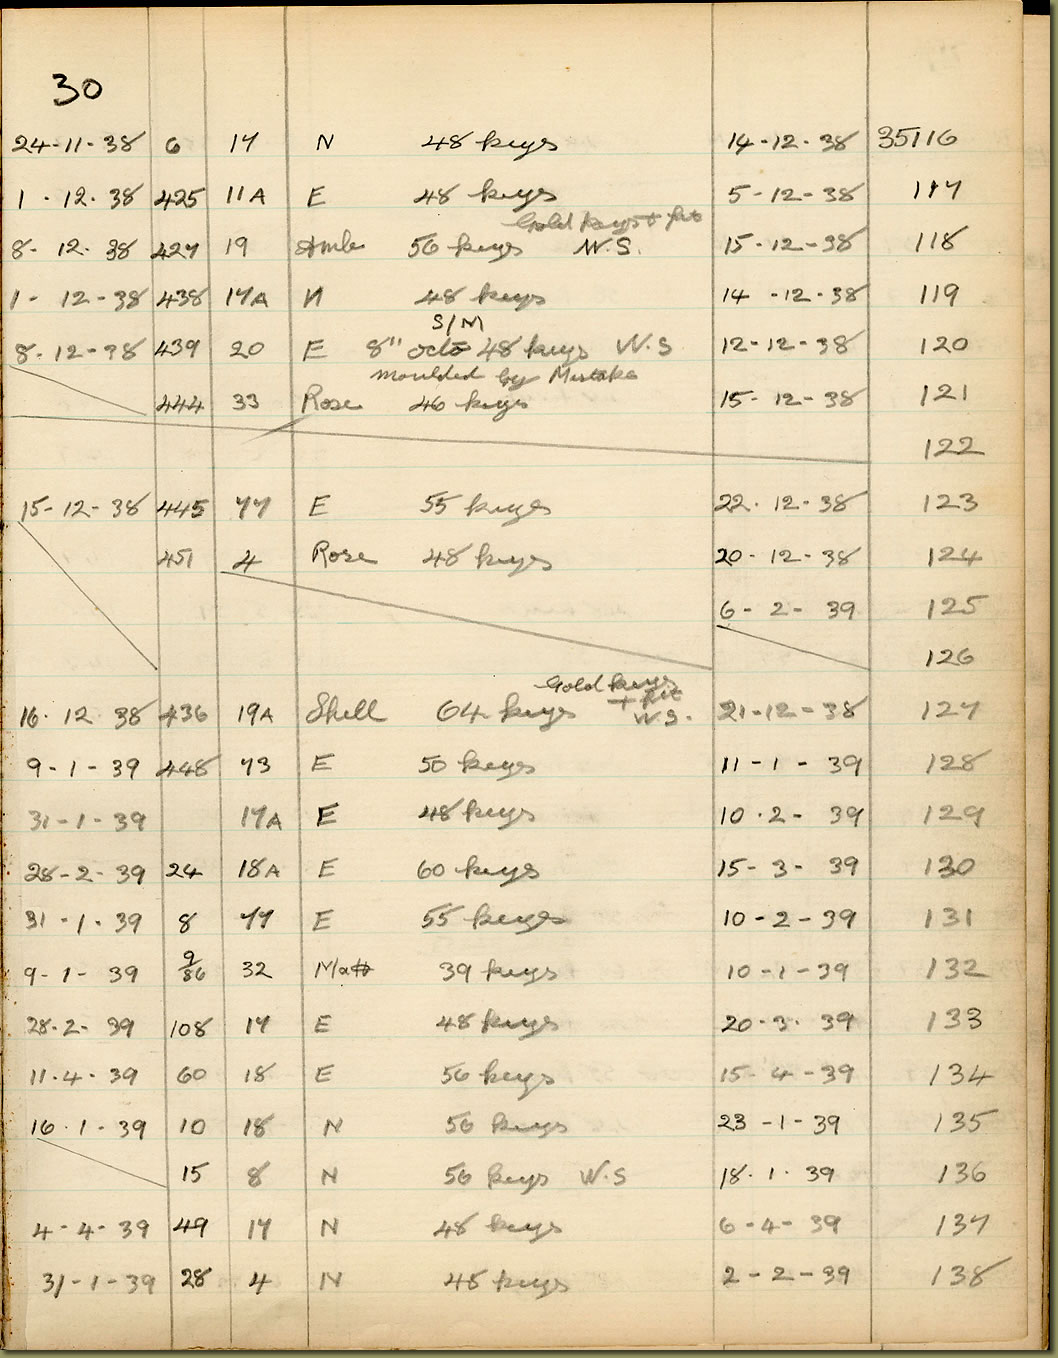 30
24-11-38 6 17 N 48 keys 14-12-38 35116
1-12-38 425 11A E 48 keys 5-12-38 117
Gold keys + frt
8-12-38 427 19 Amb 56 keys W.S. 15-12-38 118
1-12-38 438 17A N 48 keys 14-12-38 119
S/M
8-12-38 439 20 E 8" octo 48 keys W.S 12-12-38 120
moulded by Mistake
444 33 Rose 46 keys 15-12-38 121
122
15-12-38 445 77 E 55 keys 22-12-38 123
451 4 Rose 48 keys 20-12-38 124
6-2-39 125
126
Gold keys
+ frt
16-12-38 436 19A Shell 64 keys W.S. 21-12-38 127
9-1-39 448 73 E 50 keys 11-1-39 128
31-1-39 17A E 48 keys 10-2-39 129
28-2-39 24 18A E 60 keys 15-3-39 130
31-1-39 8 77 E 55 keys 10-2-39 131
9-1-39 9/86 32 Matt 39 keys 10-1-39 132
28-2-39 108 17 E 48 keys 20-3-39 133
11-4-39 60 18 E 56 keys 15-4-39 134
16-1-39 10 18 N 56 keys 23-1-39 135
15 8 N 56 keys W.S 18-1-39 136
4-4-39 49 17 N 48 keys 6-4-39 137
31-1-39 28 4 N 48 keys 2-2-39 138